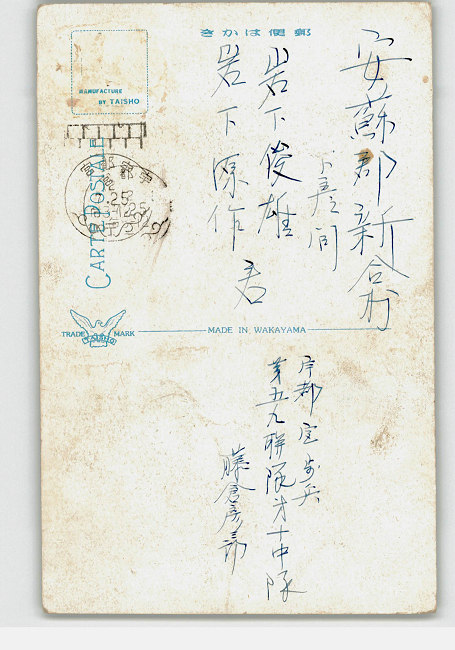 きかは便郵
MANUFACTURE
BY TAISHO
CARTE POSTALE
安蘇郡新合村
下彦間
岩下俊雄
岩下源作 君
TRADE MARK
TAISHO
MADE IN WAKAYAMA
宇都宮歩兵
第五九聯隊第十中隊
藤倉彦